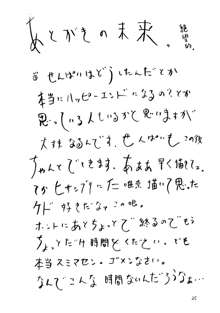 あとがきの未来。絶望的。
せんぱいはどうしたんだとか
本当にハッピーエンドになるの?とか
思っている人もいるかと思いますが
大丈夫なるんです。せんぱいもこの後
ちゃんとでてきます。あああ早く描きてぇ。
てかヒサシブリにこの眼京描いて思った
ケド 好きだなァこの眼。
ホントにあとちょっとで終るのでもう
ちょっとだけ時間をください。でも
本当スミマセン。ゴメンなさい。
なんでこんな時間ないんだろうなぁ…